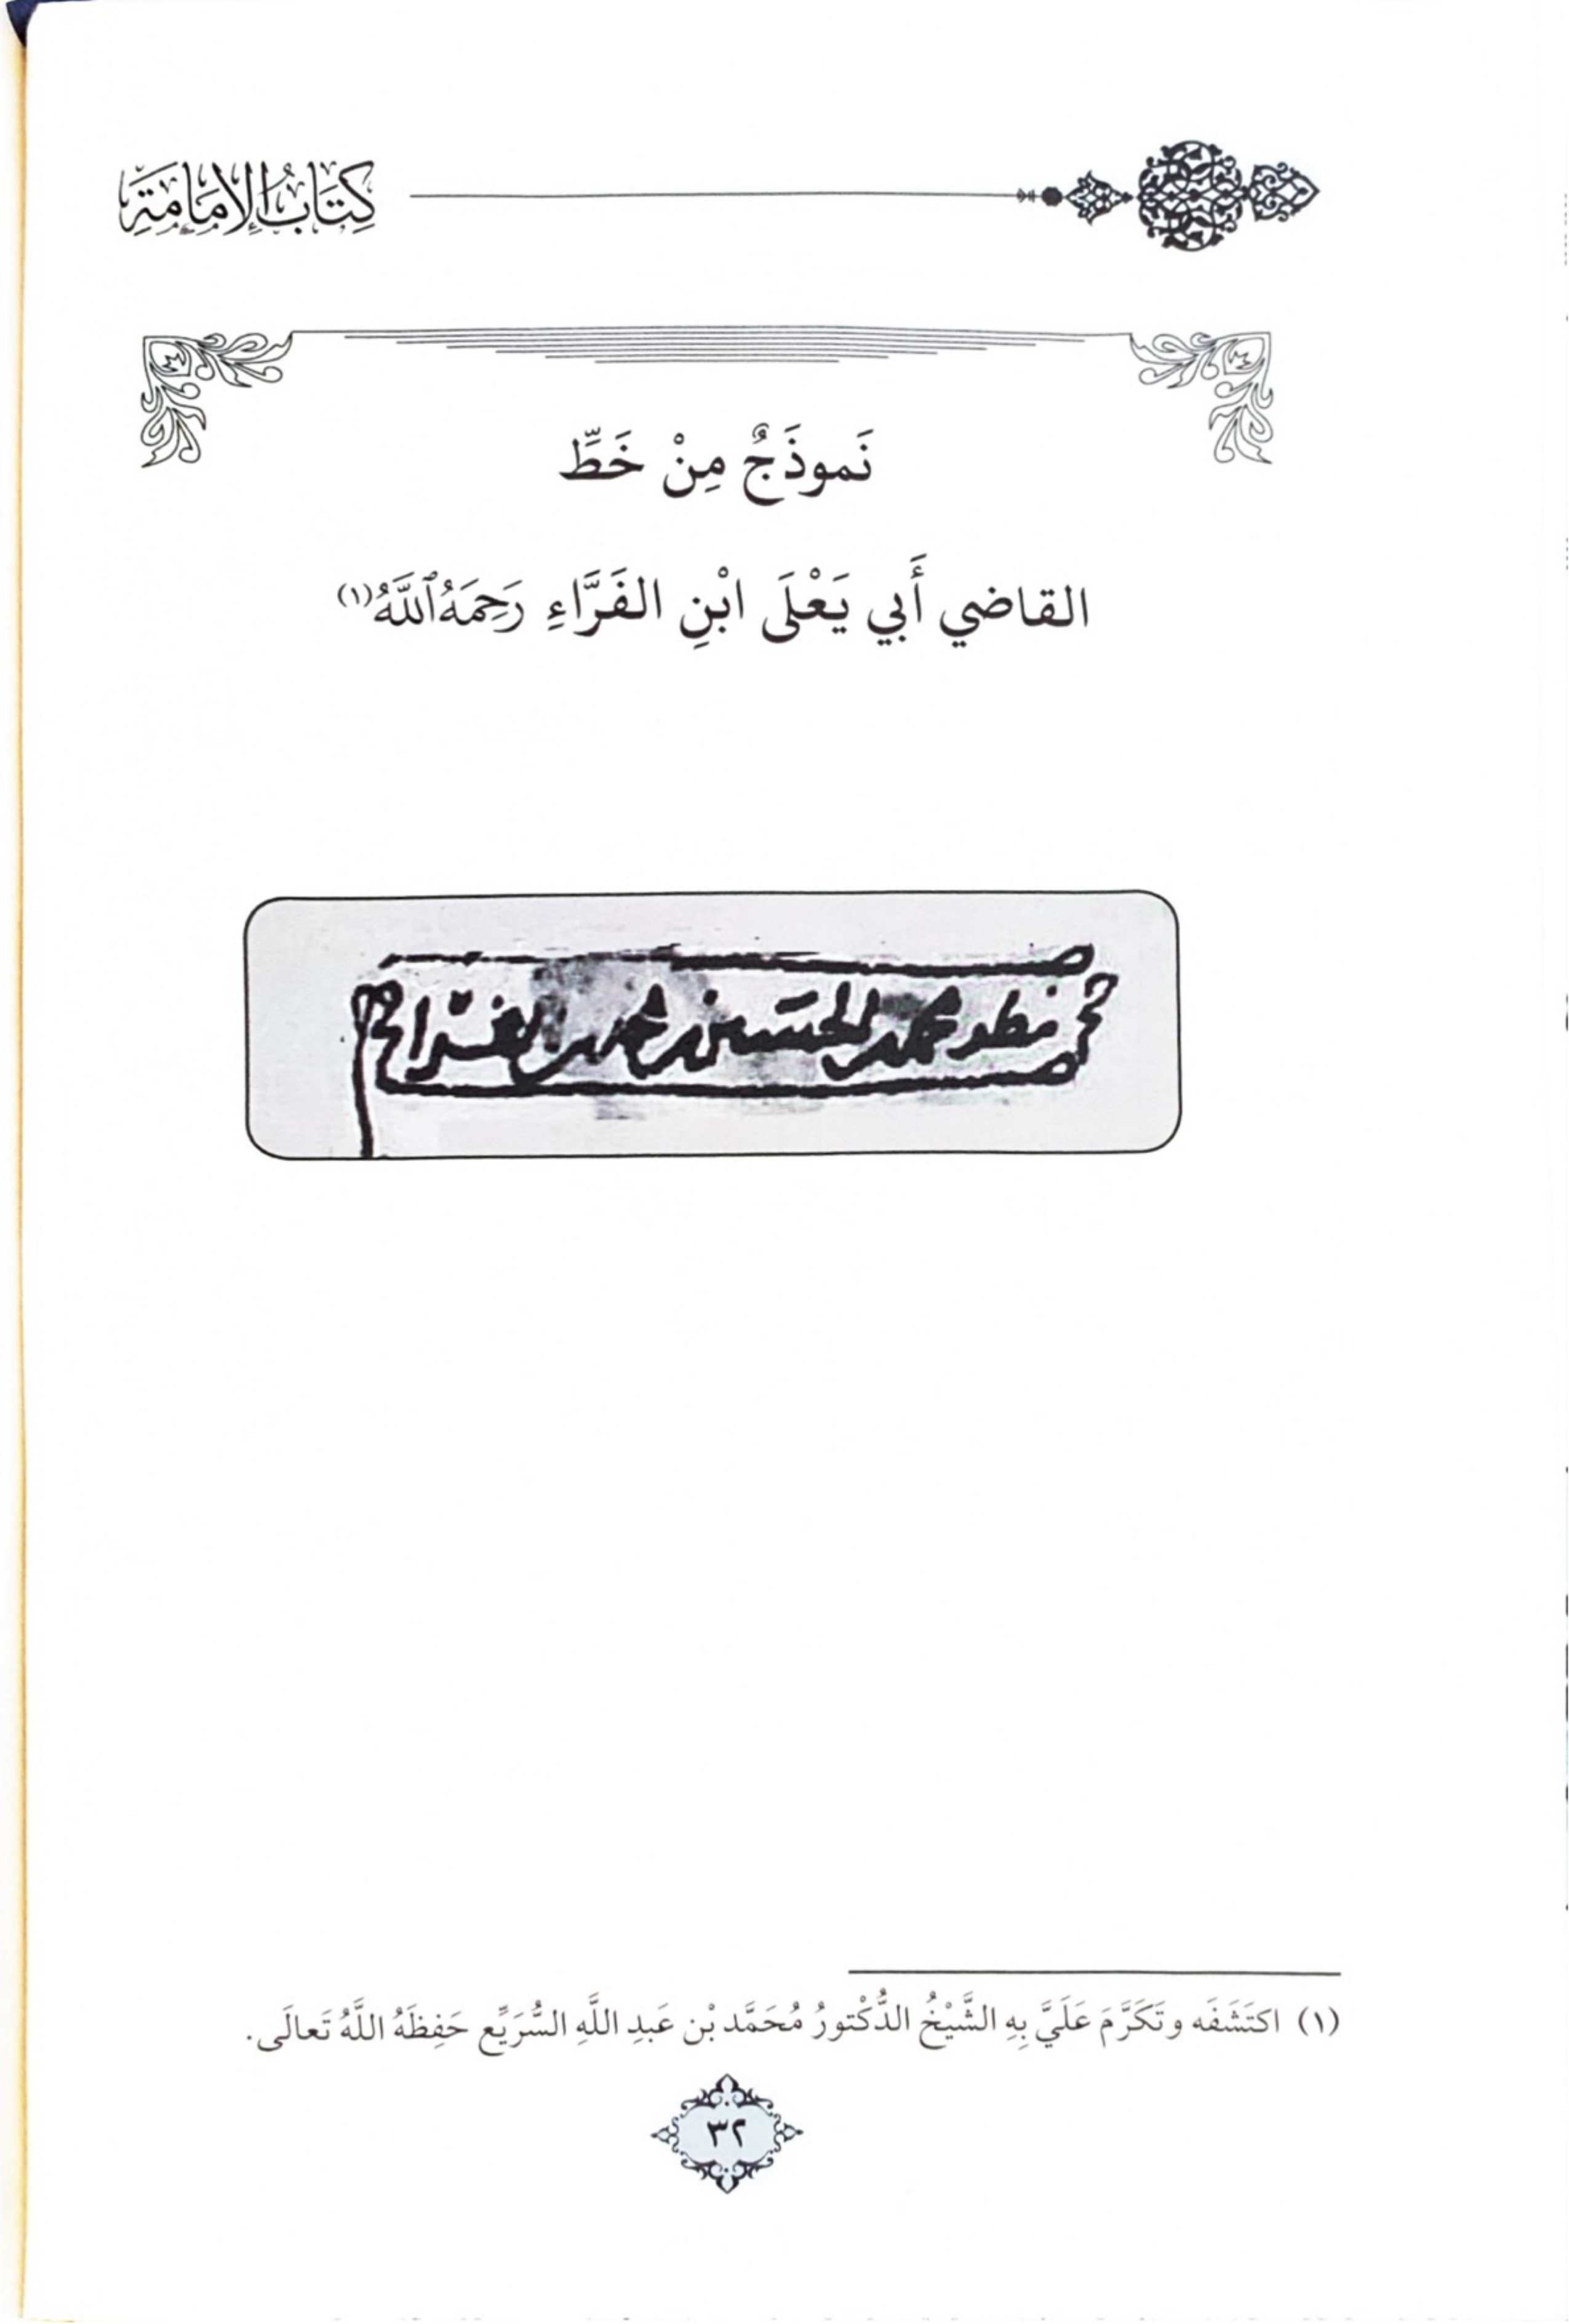 كِتَابُ الإِمَامَةِ
نَموذَجٌ مِنْ خَطِّ
القاضي أَبي يَعْلَى ابْنِ الفَرَّاءِ رَحِمَهُ ٱللَّهُ (١)
محمد الحسين محمد الفراء
(١) اكتَشَفَه وتَكَرَّمَ عَلَيَّ بِهِ الشَّيْخُ الدُّكْتورُ مُحَمَّد بْن عَبدِ اللَّهِ السُّرَيِّع حَفِظَهُ اللَّهُ تَعالَى.
٣٢